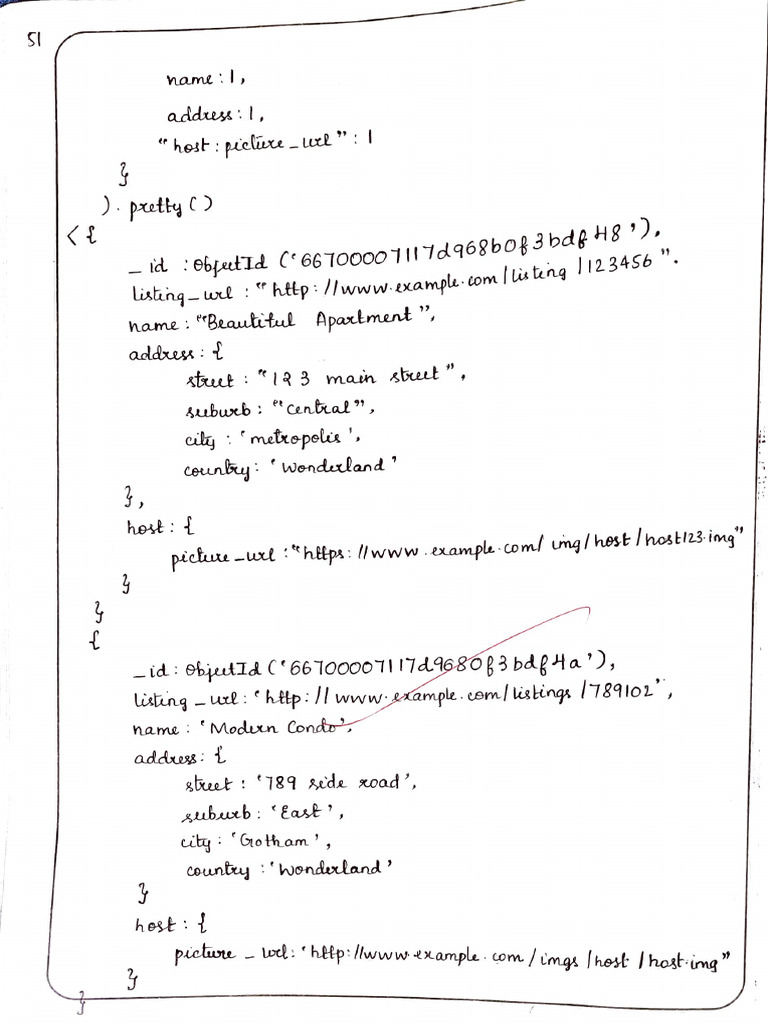 51
name : 1,
address : 1,
"host : picture_url" : 1
}
). pretty()
< {
_id : ObjectId ('66700007117d968b0f3bdf48'),
listing_url : "http://www.example.com/listing/123456".
name : "Beautiful Apartment",
address : {
street : "123 main street",
suburb : "central",
city : 'metropolis',
country : 'Wonderland'
},
host : {
picture_url : "https://www.example.com/img/host/host123.img"
}
}
{
_id : ObjectId ('66700007117d9680f3bdf4a'),
listing_url : 'http://www.example.com/listings/789102',
name : 'Modern Condo',
address : {
street : '789 side road',
suburb : 'East',
city : 'Gotham',
country : 'Wonderland'
}
host : {
picture_url : 'http://www.example.com/imgs/host/host.img"
}
}